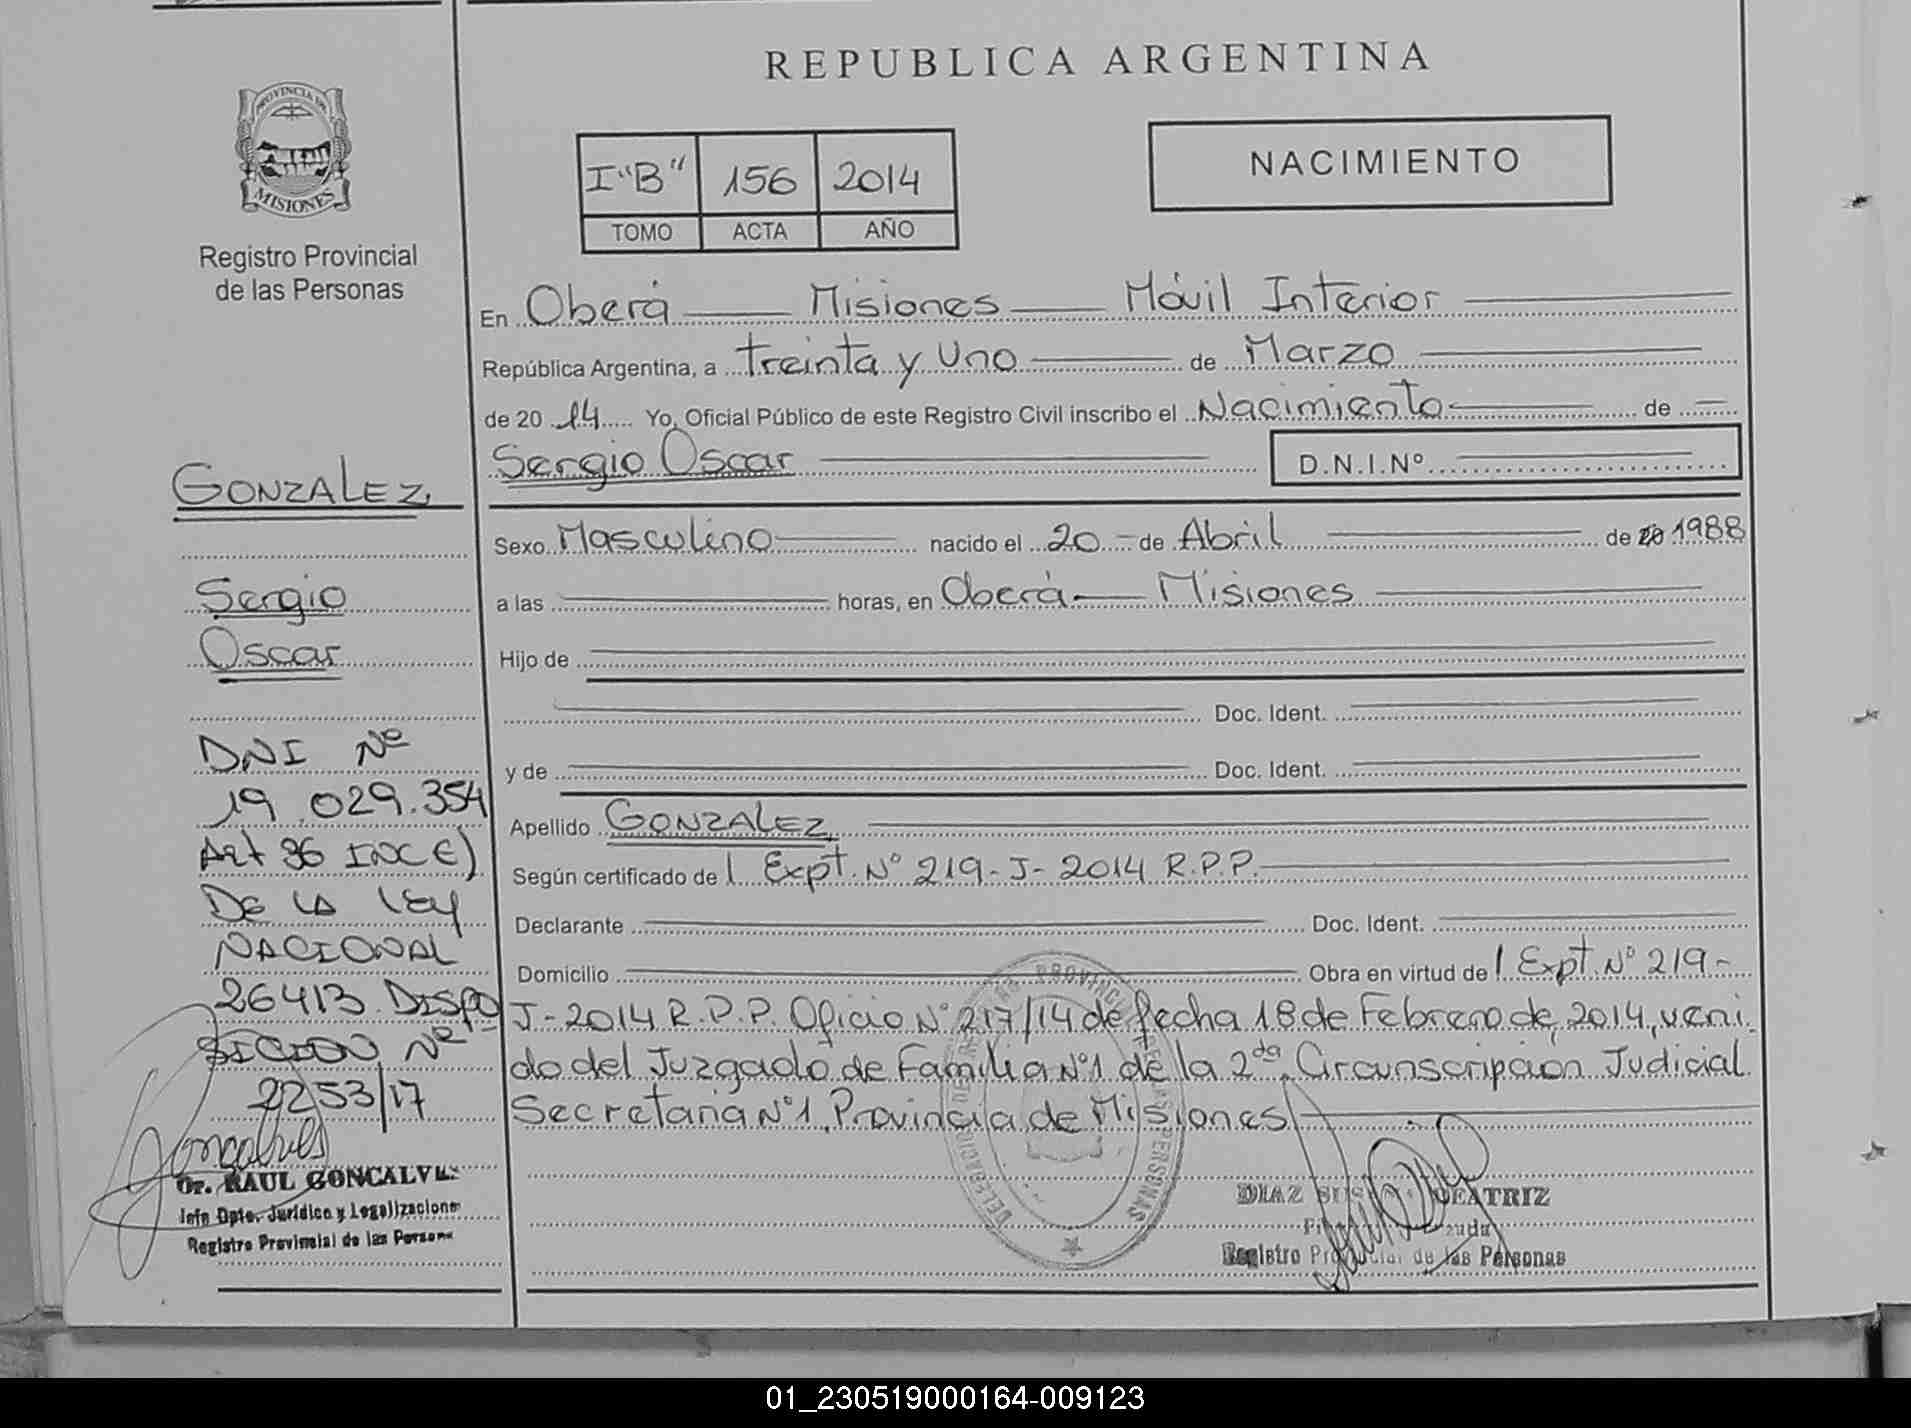 REPUBLICA ARGENTINA
PROVINCIA DE
MISIONES
Registro Provincial
de las Personas
I "B" 156 2014
TOMO ACTA AÑO
NACIMIENTO
En Oberá Misiones Móvil Interior
República Argentina, a treinta y Uno de Marzo
de 20 14 Yo, Oficial Público de este Registro Civil inscribo el Nacimiento de
Sergio Oscar D.N.I.Nº
Sexo Masculino nacido el 20 de Abril de 1988
a las horas, en Oberá Misiones
Hijo de
Doc. Ident.
y de Doc. Ident.
Apellido GONZALEZ
Según certificado de Expt. Nº 219-J-2014 R.P.P.
Declarante Doc. Ident.
Domicilio Obra en virtud de Expt. Nº 219-
J-2014 R.P.P. Oficio Nº 217/14 de fecha 18 de Febrero de 2014, veni
do del Juzgado de Familia Nº1 de la 2da Circunscripción Judicial
Secretaria Nº1, Provincia de Misiones
GONZALEZ
Sergio
Oscar
DNI Nº
19.029.354
Art 36 INC E)
DE LA LEY
NACIONAL
26413. DISPO
SICION Nº
2253/17
Goncalves
Dr. RAUL GONCALVES
Jefe Dpto. Jurídico y Legalizaciones
Registro Provincial de las Personas
DIAZ BEATRIZ
Registro Provincial de las Personas
01_230519000164-009123